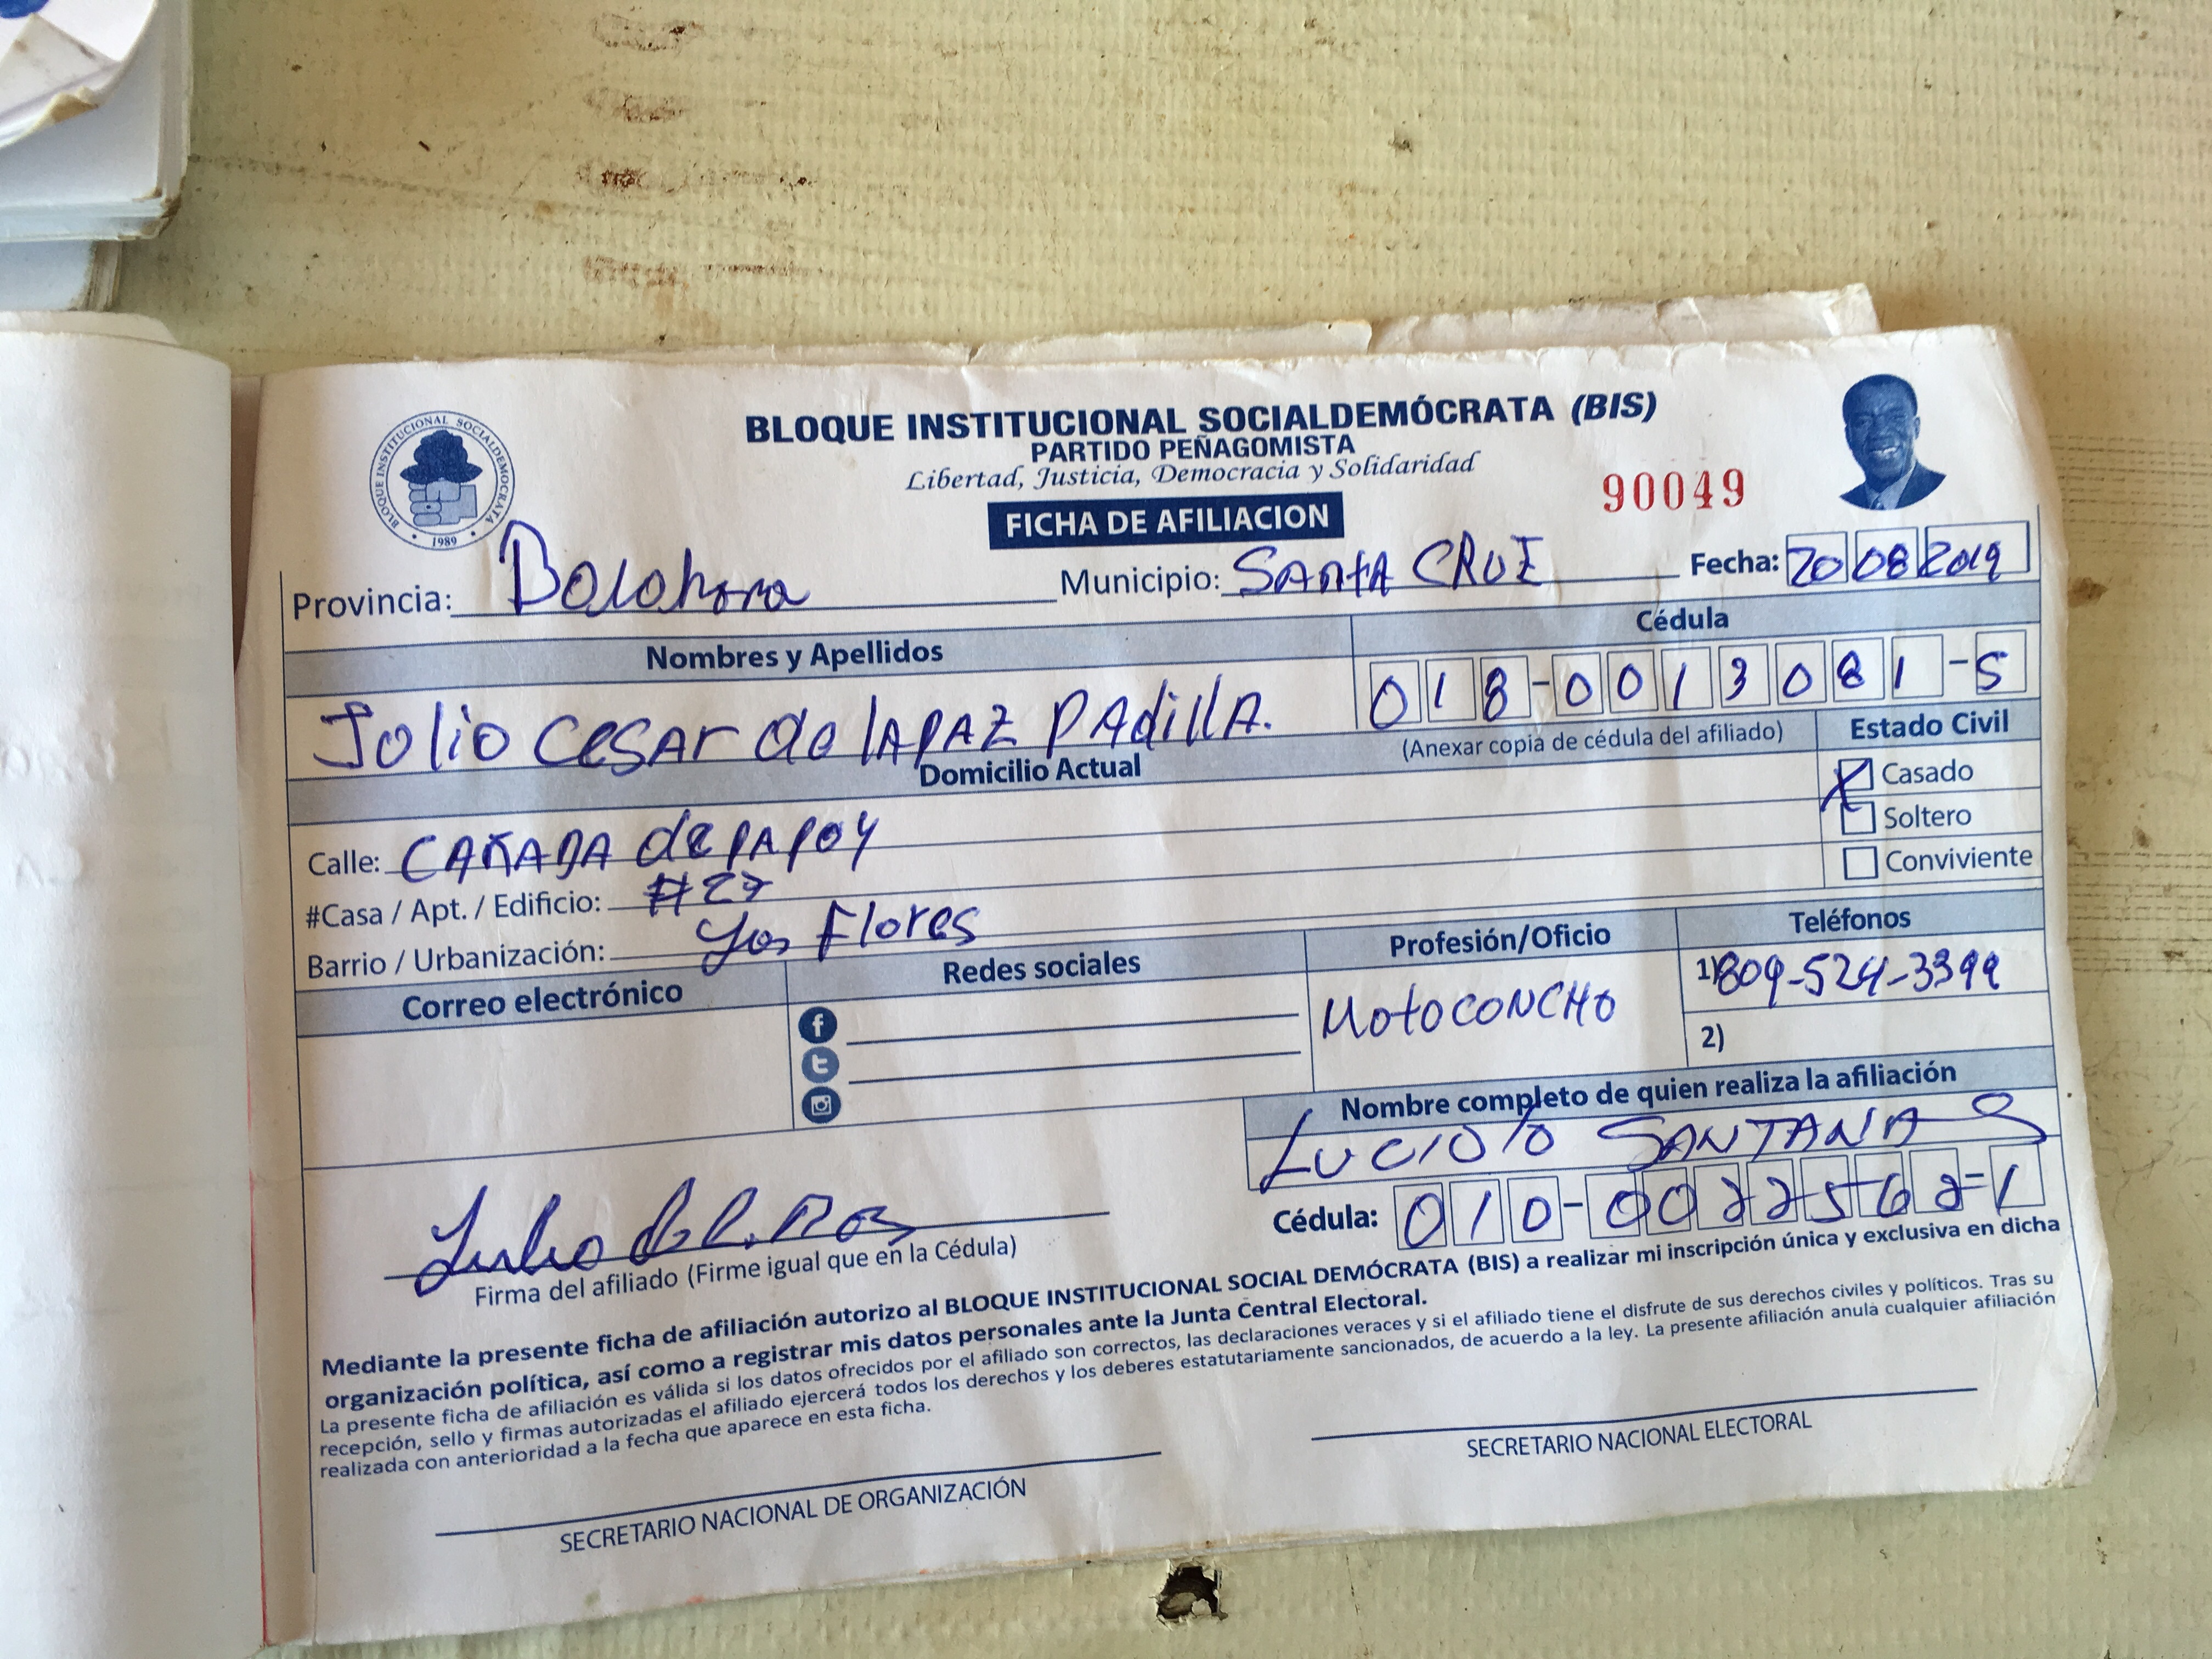 BLOQUE INSTITUCIONAL SOCIALDEMOCRATA
1989
BLOQUE INSTITUCIONAL SOCIALDEMÓCRATA (BIS)
PARTIDO PEÑAGOMISTA
Libertad, Justicia, Democracia y Solidaridad
90049
FICHA DE AFILIACION
Provincia: Municipio: SANTA CRUZ Fecha: 20 08 2019
Nombres y Apellidos Cédula
Jolio Cesar de la PAZ PAdillA. 018-0013081-5
(Anexar copia de cédula del afiliado)
Domicilio Actual Estado Civil
X Casado
Soltero
Conviviente
Calle: CAÑADA de PAPOY
#Casa / Apt. / Edificio: #27
Barrio / Urbanización: Los Flores
Correo electrónico Redes sociales Profesión/Oficio Teléfonos
MOTOCONCHO 1) 809-524-3399
2)
Nombre completo de quien realiza la afiliación
SANTANA
Cédula: 010-0022562-1
Firma del afiliado (Firme igual que en la Cédula)
Mediante la presente ficha de afiliación autorizo al BLOQUE INSTITUCIONAL SOCIAL DEMÓCRATA (BIS) a realizar mi inscripción única y exclusiva en dicha
organización política, así como a registrar mis datos personales ante la Junta Central Electoral.
La presente ficha de afiliación es válida si los datos ofrecidos por el afiliado son correctos, las declaraciones veraces y si el afiliado tiene el disfrute de sus derechos civiles y políticos. Tras su
recepción, sello y firmas autorizadas el afiliado ejercerá todos los derechos y los deberes estatutariamente sancionados, de acuerdo a la ley. La presente afiliación anula cualquier afiliación
realizada con anterioridad a la fecha que aparece en esta ficha.
SECRETARIO NACIONAL DE ORGANIZACIÓN SECRETARIO NACIONAL ELECTORAL